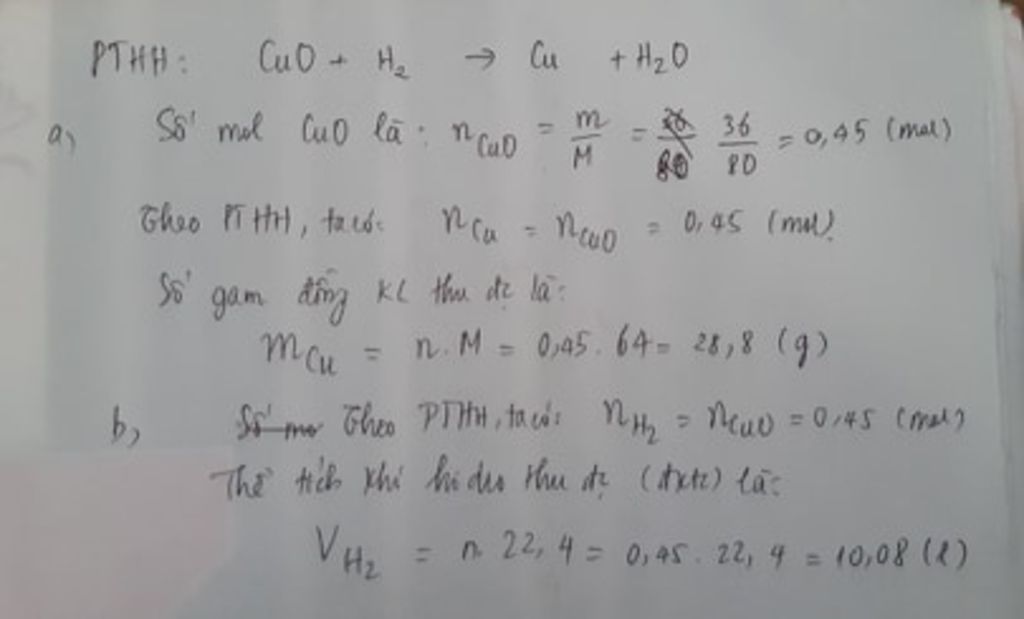 PTHH: CuO + H₂ → Cu + H₂O
a, Số mol CuO là: n_CuO = m/M = 36/80 = 0,45 (mol)
Theo PTHH, ta có: n_Cu = n_CuO = 0,45 (mol)
Số gam đồng KL thu đc là:
m_Cu = n.M = 0,45. 64 = 28,8 (g)
b, Số mo Theo PTHH, ta có: n_H₂ = n_CuO = 0,45 (mol)
Thể tích khí hiđro thu đc (đktc) là:
V_H₂ = n. 22,4 = 0,45. 22,4 = 10,08 (l)